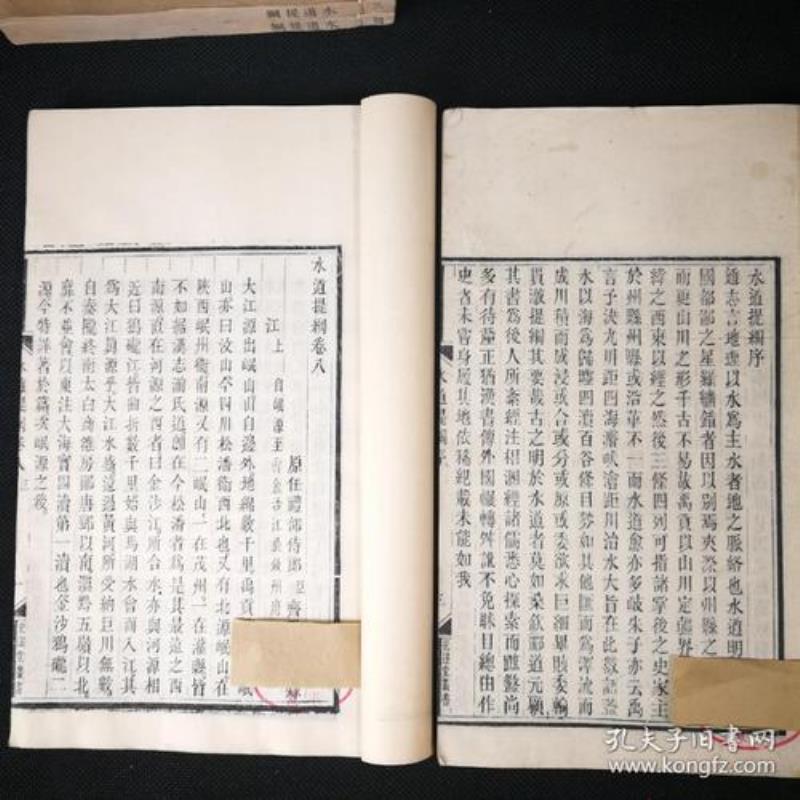 水道提綱序
通志言地理以水為主水者地之脈絡也水道明
國都鄙之星羅繡錯者因以別焉夾漈以州縣之
而更山川之形千古不易故禹貢以山川定疆界
緯之西東以經之然後三條四列可指諸掌後之史家主
於州縣州縣或沿革不一而水道愈亦多岐朱子亦云禹
言子決九川距四海濬畎澮距川治水大旨在此數語蓋
水以海為歸墟四瀆百谷條目夥如其他匯而為澤流而
成川積而成浸或合或分或原或委欲求巨細畢賅委輸
貫澈提綱其要哉古之明於水道者莫如桑欽酈道元顧
其書為後人所紊經注相溷經諸儒悉心探索而醜盭尚
多有待釐正猶漢書傳外國輾轉舛譌不免昧目總由作
史者未嘗身履其地依稀紀載未能如我
水道提綱序
水道提綱卷八
原任禮部侍郎臣齊
江上
自岷源至
大江源出岷山山自邊外地綿數千里禹貢
岷
山亦曰汶山在四川松潘衛西北也又有北源岷山在
陝西岷州衛南源又有二岷山一在茂州一在灌縣皆
不如據漢志湔氐道郎在今松潘者為是其最遠之西
南源直在河源之西者曰金沙江所合水亦與河源相
近曰鴉礲江皆曲折數千里始與馬湖水會而入江其
為大江眞源乎大江水盛遠過黃河所受納巨川無數
自秦隴終南太白商雒房鄖唐鄧以南滇黔五嶺以北
靡不並會以東注大海實四瀆第一瀆也金沙鴉礲二
源今特詳著於篇次岷源之後
水道提綱卷八
水道提綱
水道提綱
孔夫子旧书网
www.kongfz.com